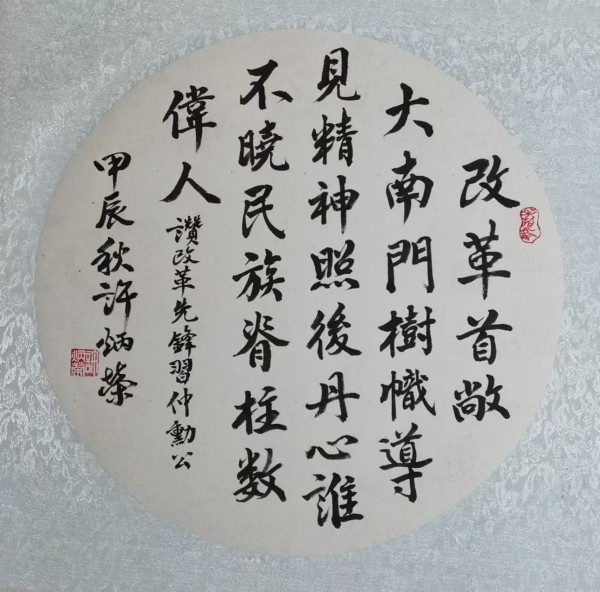 改革首敞
大南門樹幟導
見精神照後丹心誰
不曉民族脊柱数
偉人
讚改革先鋒習仲勳公
甲辰秋許炳榮